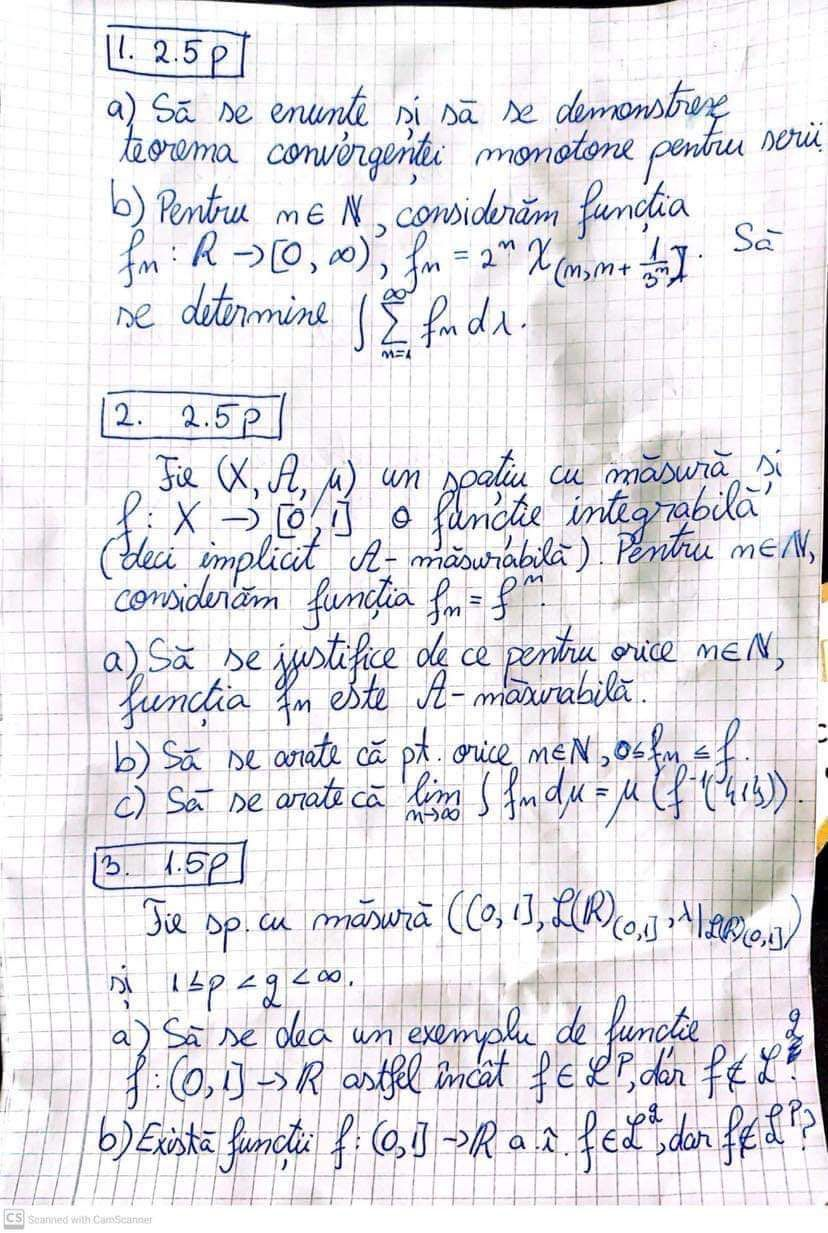 1. 2.5p
a) Să se enunțe și să se demonstreze
teorema convergenței monotone pentru serii
b) Pentru n ∈ ℕ, considerăm funcția
fn : R → [0, ∞), fn = 2^n χ(n, n + 1/3^n]. Să
se determine ∫ ∑_{n=1}^{∞} fn dλ.
2. 2.5p
Fie (X, A, μ) un spațiu cu măsură și
f: X → [0, 1] o funcție integrabilă
(deci implicit A-măsurabilă). Pentru n ∈ ℕ,
considerăm funcția fn = f^n.
a) Să se justifice de ce pentru orice n ∈ ℕ,
funcția fn este A-măsurabilă.
b) Să se arate că pt. orice n ∈ ℕ, 0 ≤ fn ≤ f.
c) Să se arate că lim_{n→∞} ∫ fn dμ = μ(f^{-1}({1})).
3. 1.5p
Fie sp. cu măsură ((0, 1], L(R)_{(0,1]}, λ|_{L(R)_{(0,1]}})
și 1 ≤ p < q < ∞.
a) Să se dea un exemplu de funcție
f: (0, 1] → R astfel încât f ∈ L^p, dar f ∉ L^q.
b) Există funcții f: (0, 1] → R a.î. f ∈ L^q, dar f ∉ L^p?
CS Scanned with CamScanner